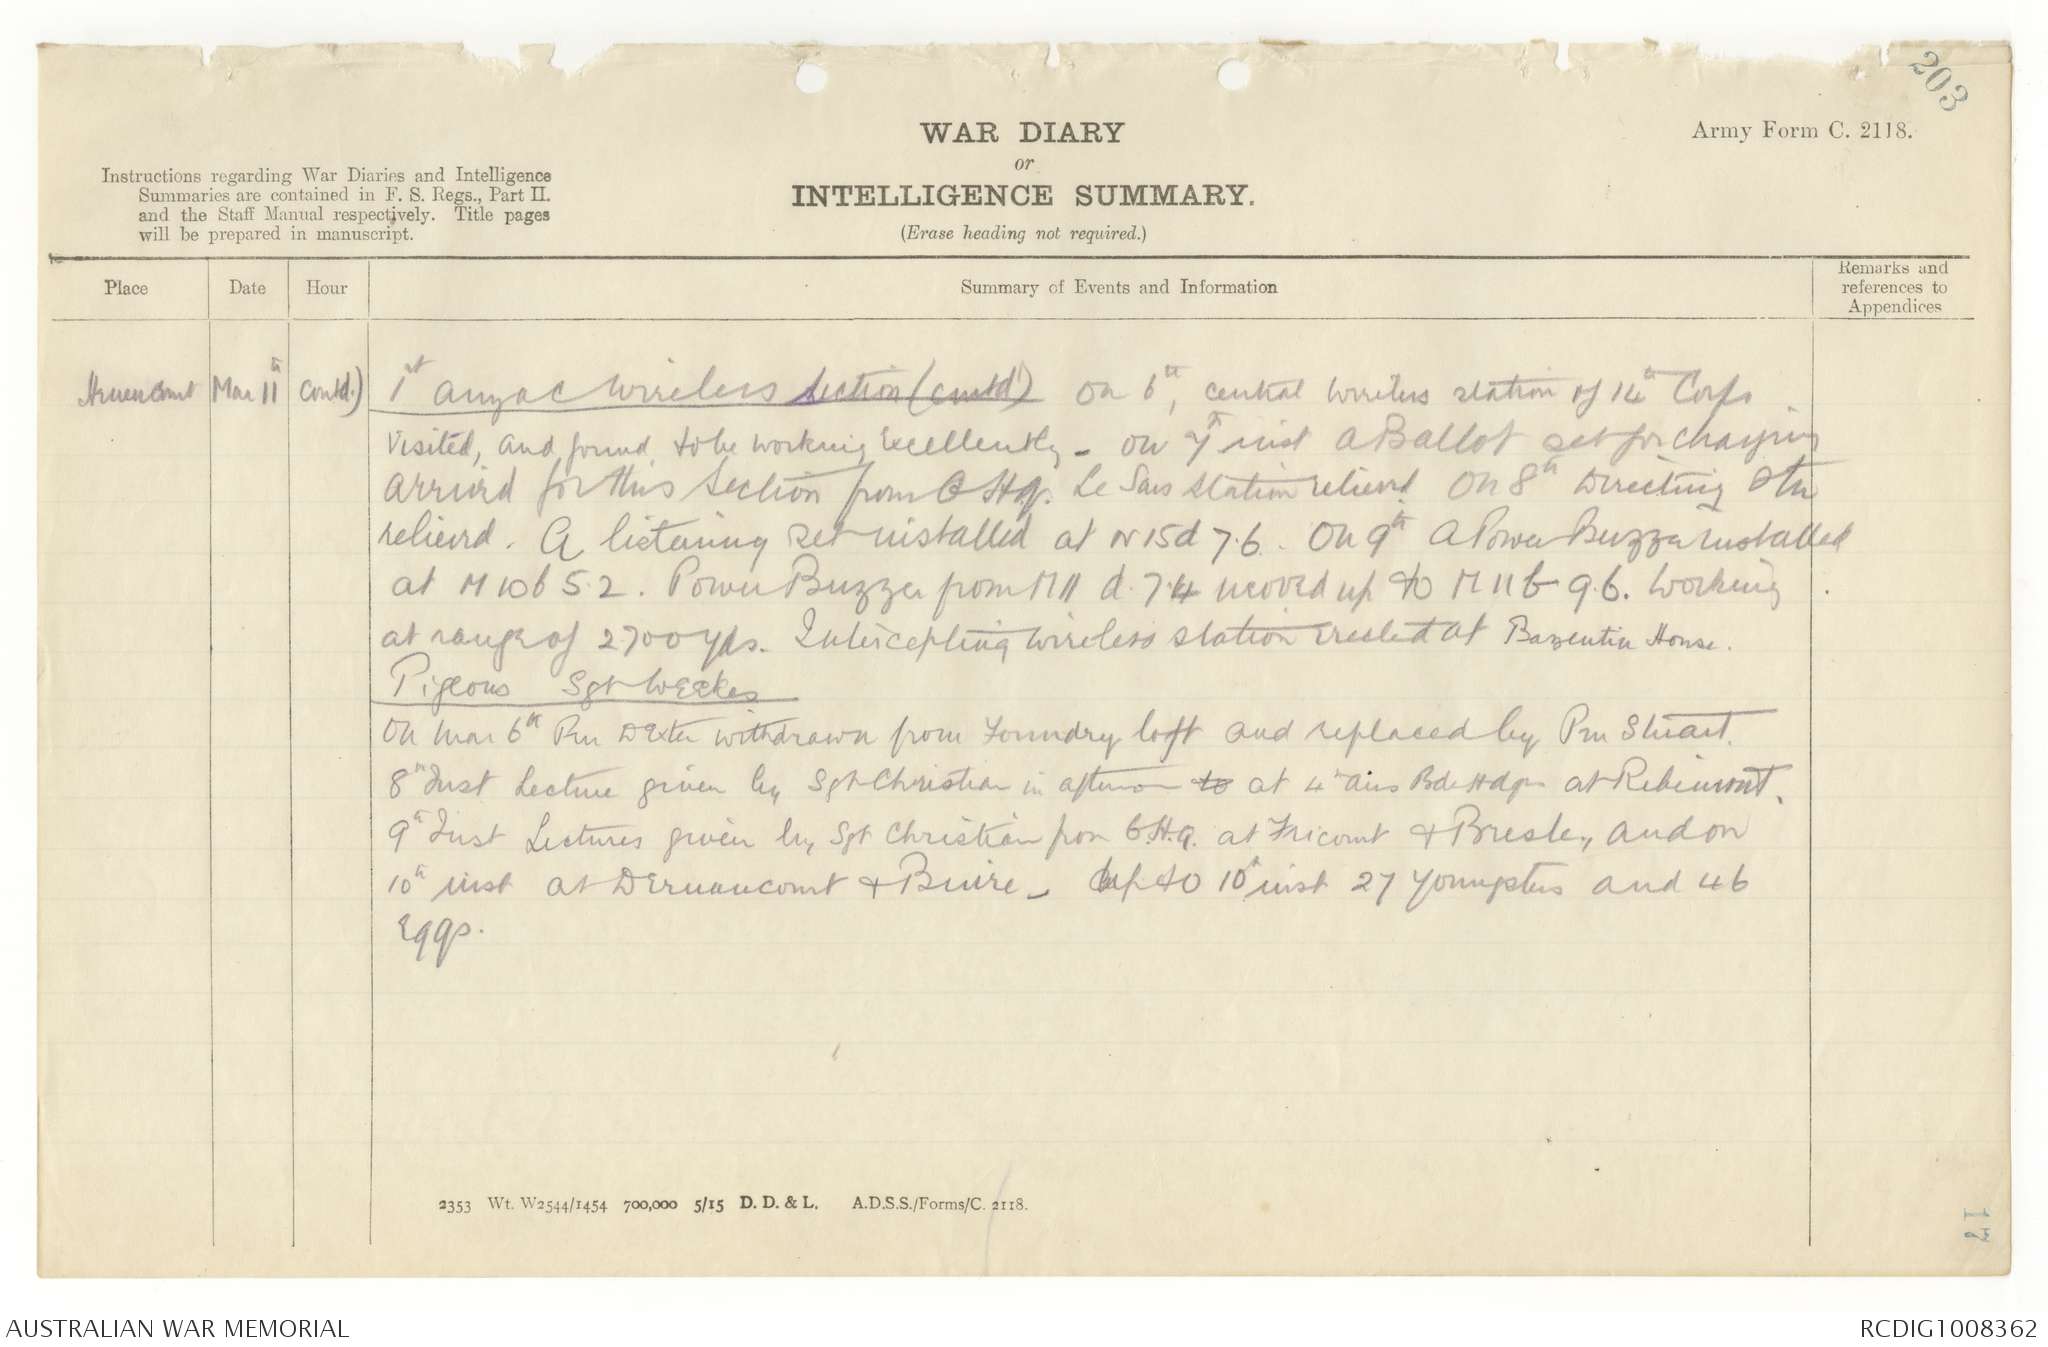 203
WAR DIARY
or
INTELLIGENCE SUMMARY.
(Erase heading not required.)
Army Form C. 2118.
Instructions regarding War Diaries and Intelligence
Summaries are contained in F. S. Regs., Part II.
and the Staff Manual respectively. Title pages
will be prepared in manuscript.
Place Date Hour Summary of Events and Information Remarks and references to Appendices
Mar 11th contd.) 1st Anzac Wireless Section (contd) On 6th, central wireless station of 14th Corps
visited, and found to be working excellently - On 7th inst a Ballot set for charging
arrived for this Section from G.H.Q. Le Sars station relieved. On 8th Directing Stn
relieved. A listening set installed at N 15 d 7.6. On 9th a Power Buzzer installed
at M 10 b 5.2. Power Buzzer from M 11 d. 7.4 moved up to M 11 b 9.6. Working
at range of 2700 yds. Intercepting wireless station erected at Bazentin House.
Pigeons Sgt Weekes
On Mar 6th Pnr Dexter withdrawn from Foundry loft and replaced by Pnr Stuart.
8th Inst Lecture given by Sgt Christian in afternoon to at 4th Divs Bde Hdqrs at Ribemont.
9th Inst Lectures given by Sgt Christian from G.H.Q. at Fricourt & Bresle, and on
10th inst at Dernancourt & Buire - Up to 10th inst 27 youngsters and 46
Eggs.
2353 Wt. W2544/1454 700,000 5/15 D. D. & L. A.D.S.S./Forms/C. 2118.
AUSTRALIAN WAR MEMORIAL
RCDIG1008362